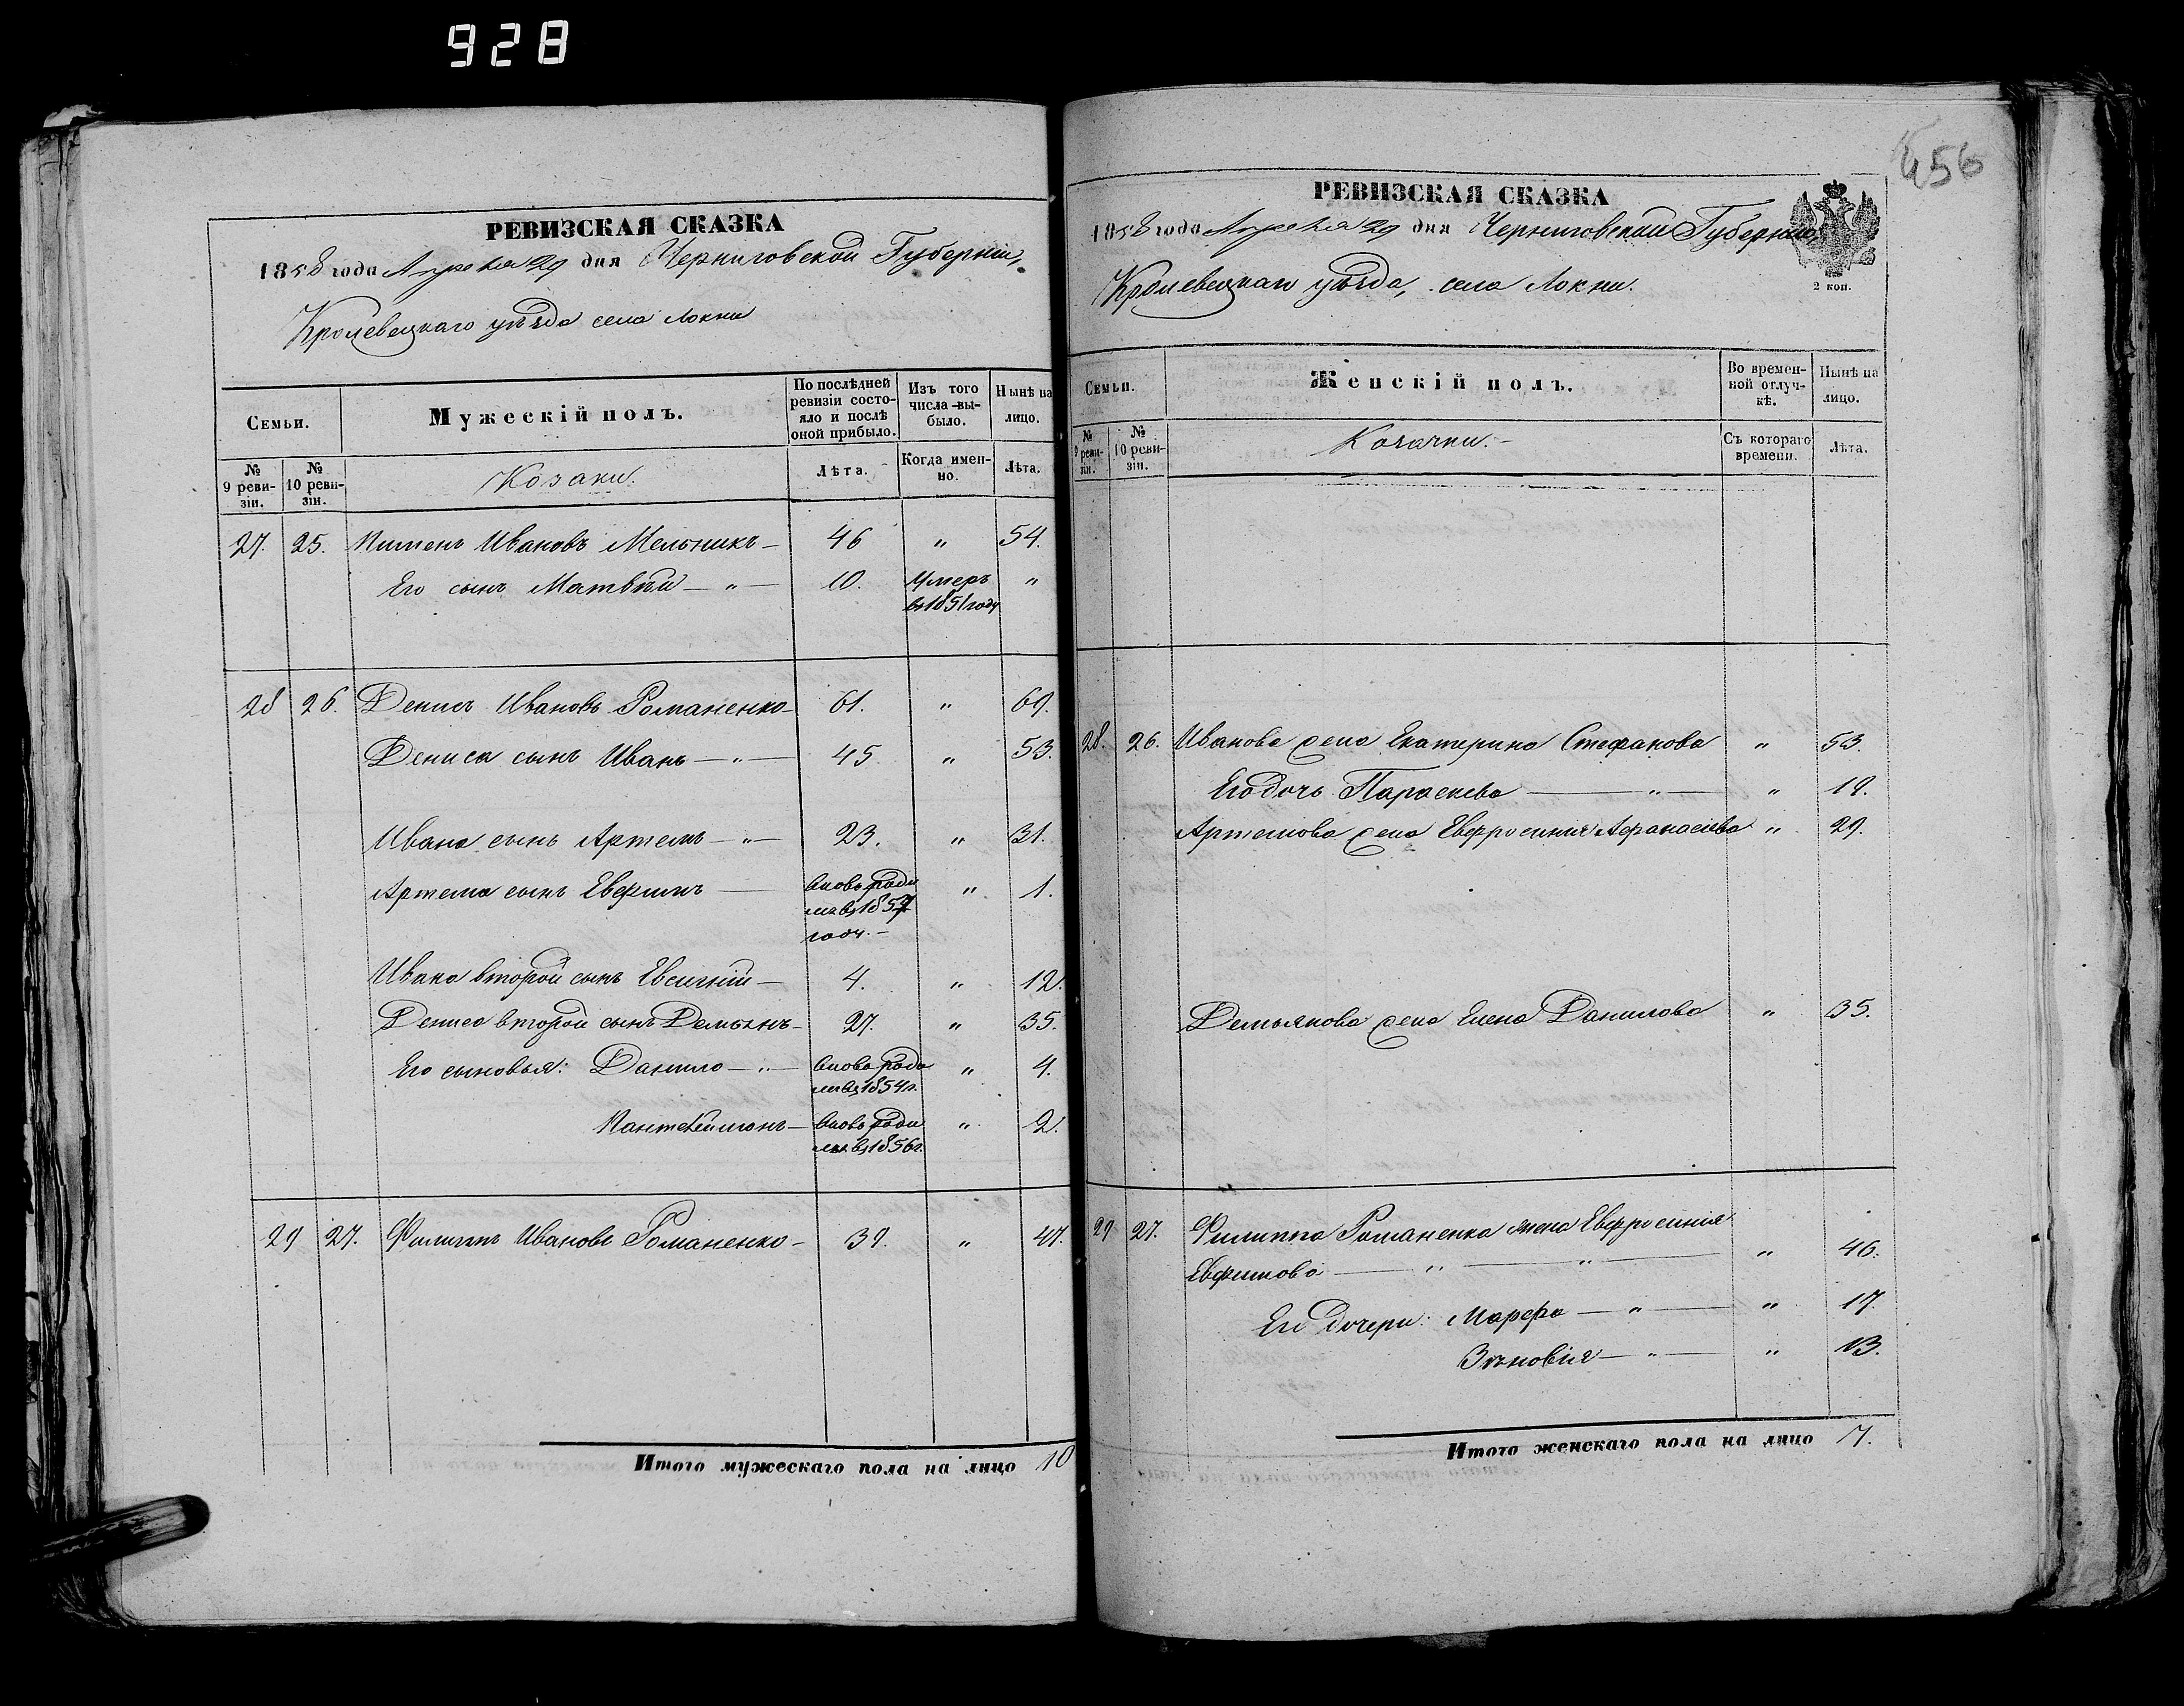 928
456
РЕВИЗСКАЯ СКАЗКА
1858 года Апреля 29 дня Черниговской Губерніи,
Кролевецкаго уѣзда села Локни
Семьи.
Мужескій полъ.
По послѣдней ревизіи состояло и послѣ оной прибыло.
Изъ того числа выбыло.
Нынѣ на лицо.
№ 9 ревизіи.
№ 10 ревизіи.
Козаки.
Лѣта.
Когда именно.
Лѣта.
27. 25. Пименъ Ивановъ Мельникъ — 46 " 54.
Его сынъ Матвѣй — " — 10. Умеръ въ 1851 году "
28 26. Денисъ Ивановъ Романенко — 61. " 69.
Дениса сынъ Иванъ — " — 45 " 53.
Ивана сынъ Артемъ — " — 23. " 31.
Артема сынъ Евфимъ — вновь роди
лся въ 1857 " 1.
году. —
Ивана второй сынъ Евсигній — 4. " 12.
Дениса второй сынъ Демьянъ — 27. " 35.
Его сыновья: Данило — " — вновь роди
лся въ 1854 г. " 4.
Пантелеймонъ — вновь роди
лся въ 1856 г. " 2.
29 27. Филиппъ Ивановъ Романенко — 39. " 47.
Итого мужескаго пола на лицо 10
РЕВИЗСКАЯ СКАЗКА
1858 года Апреля 29 дня Черниговской Губерніи,
Кролевецкаго уѣзда, села Локни.
2 коп.
Семьи.
Женскій полъ.
Во временной отлучкѣ.
Нынѣ на лицо.
№ 9 ревизіи.
№ 10 ревизіи.
Козачки. —
Съ котораго времени.
Лѣта.
28. 26. Иванова жена Екатерина Стефанова " 53.
Его дочь Параскева — " — " 19.
Артемова жена Евфросинія Афанасіева " 29.
Демьянова жена Елена Данилова " 35.
29 27. Филиппа Романенка жена Евфросинія
Евфимова — " — " — " 46.
Его дочери: Марфа — " — " 17.
Зѣновія — " — " 13.
Итого женскаго пола на лицо 7.